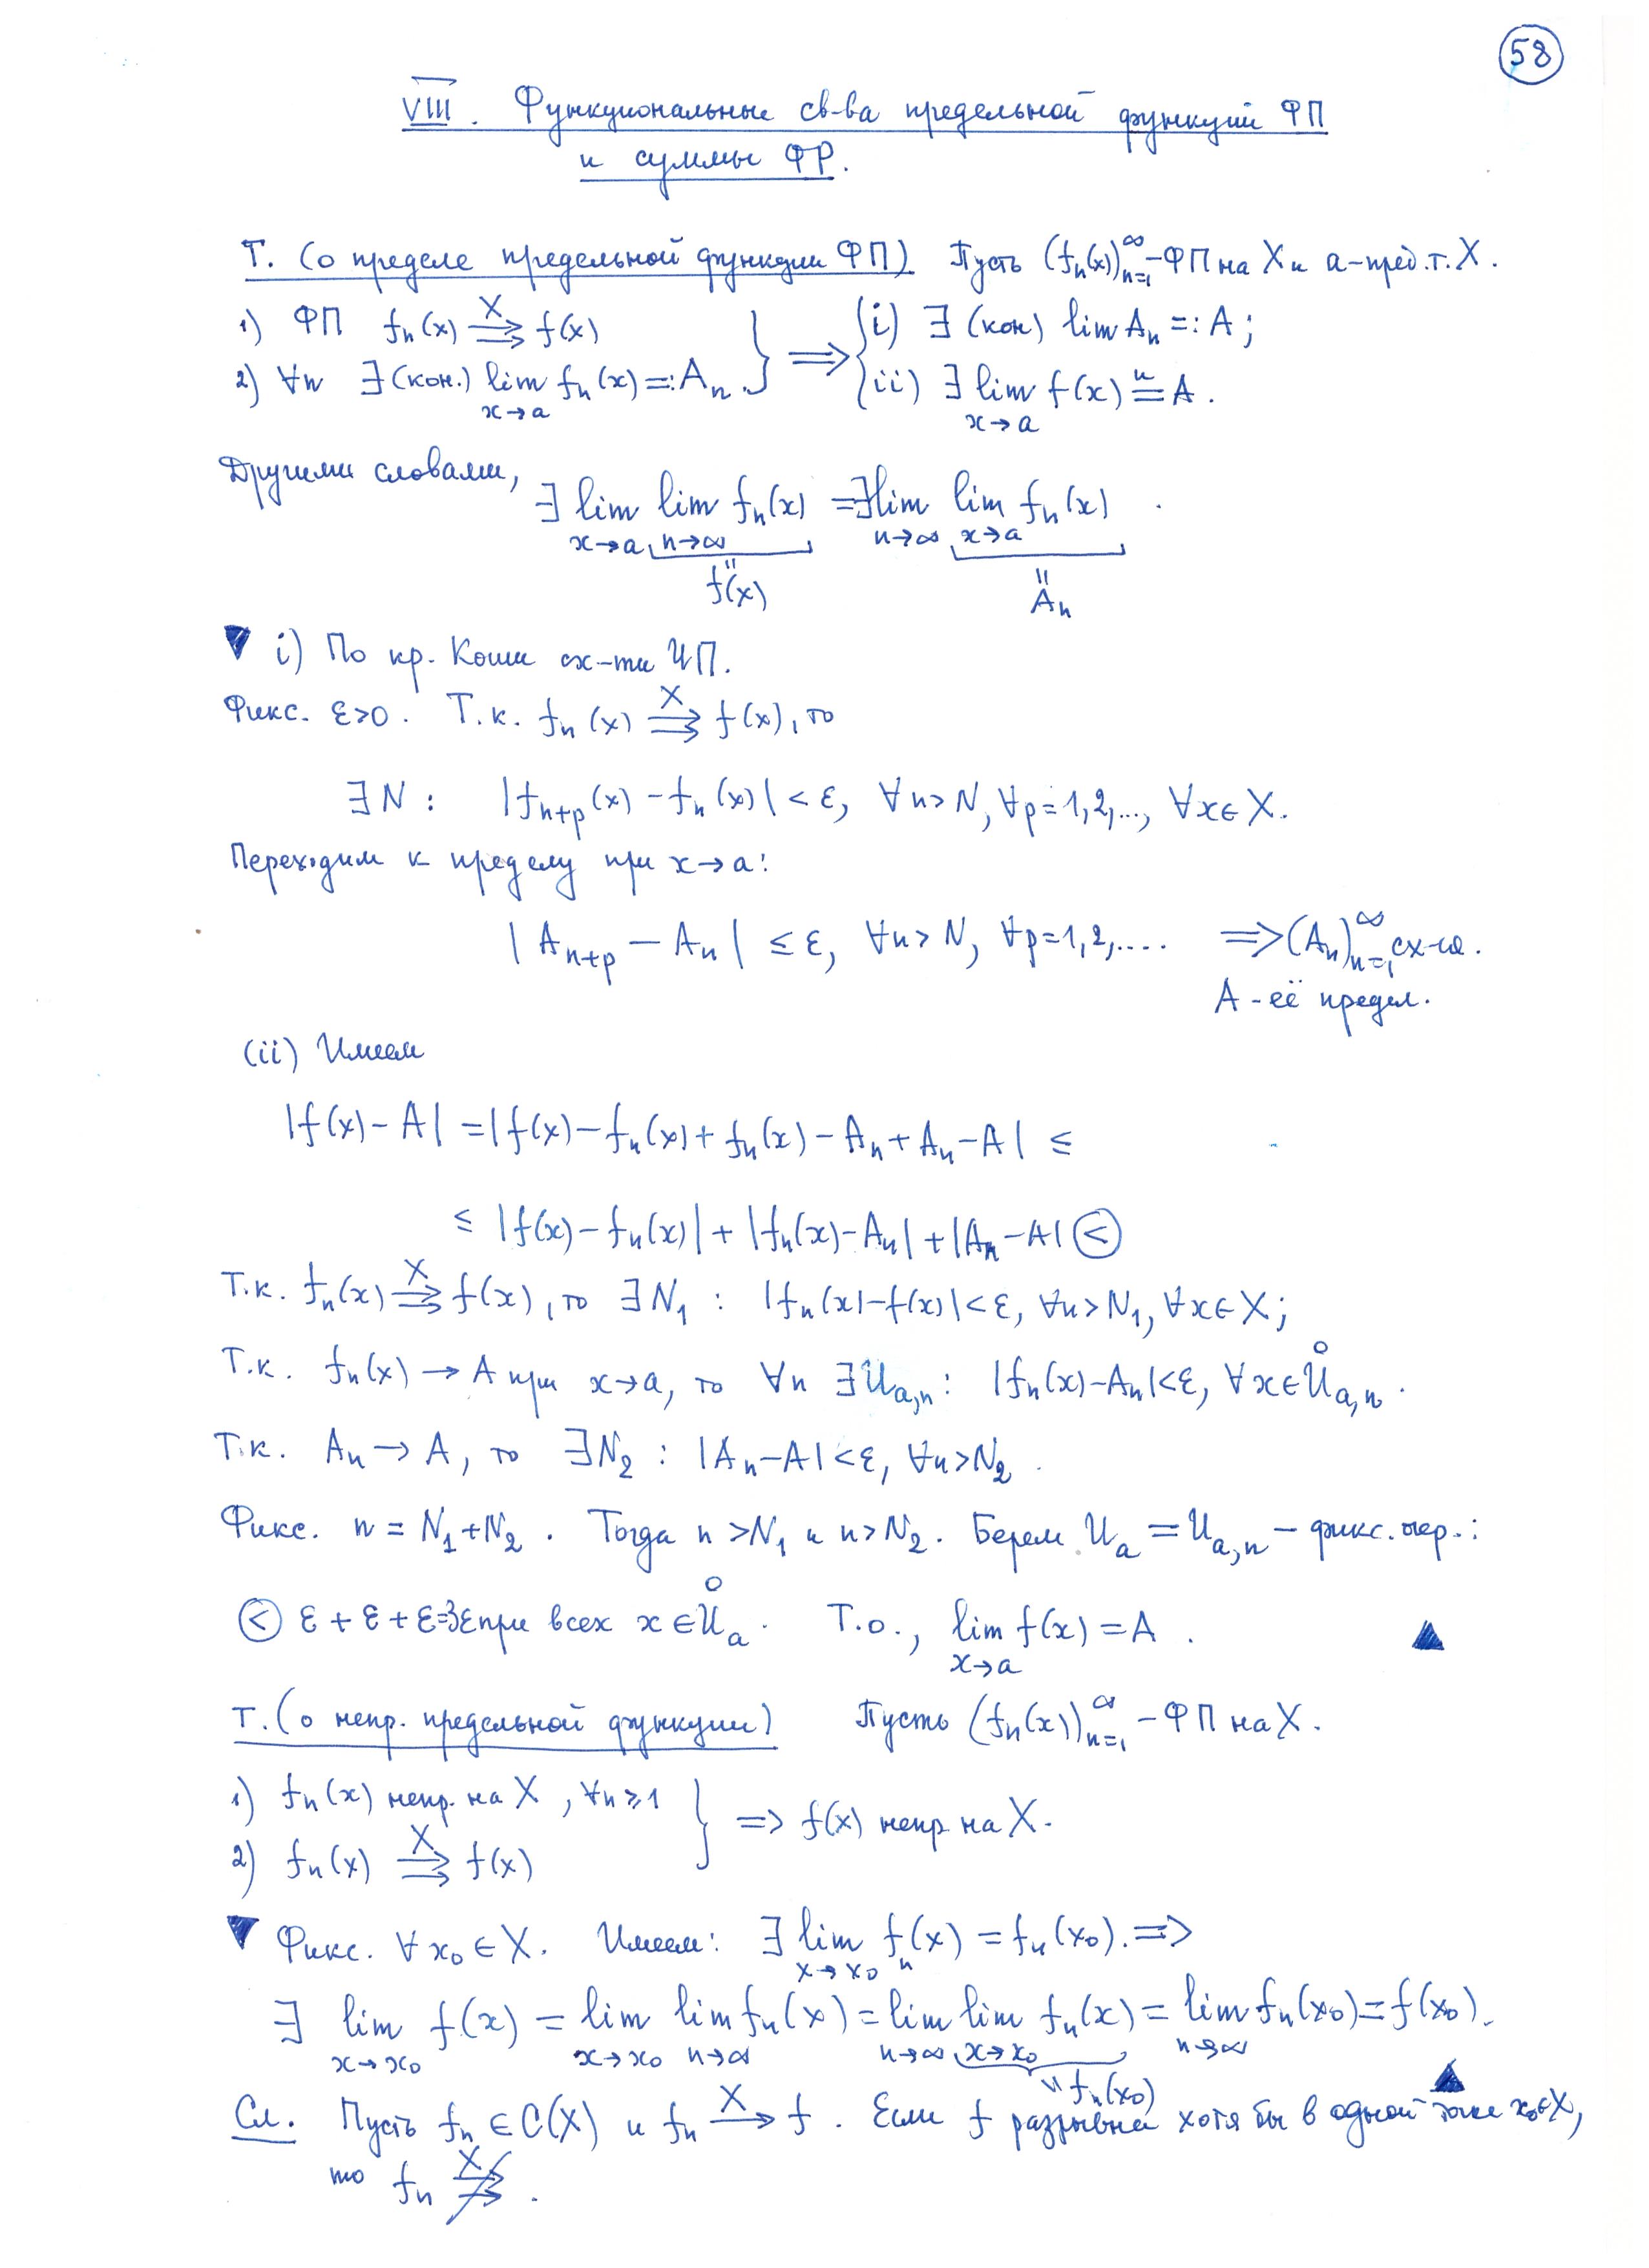 58
VIII. Функциональные св-ва предельной функции ФП
и суммы ФР.
Т. (о пределе предельной функции ФП) Пусть (fₙ(x))ₙ₌₁^∞ – ФП на X и a – пред. т. X.
1) ФП fₙ(x) ⇉^X f(x)
2) ∀n ∃(кон.) lim_{x→a} fₙ(x) =: Aₙ. } ⟹ { (i) ∃ (кон) lim Aₙ =: A;
(ii) ∃ lim_{x→a} f(x) =^u A.
Другими словами,
∃ lim_{x→a} lim_{n→∞} fₙ(x) = ∃ lim_{n→∞} lim_{x→a} fₙ(x) .
" f(x) " Aₙ
▼ i) По кр. Коши сх-ти ЧП.
Фикс. ε>0. Т.к. fₙ(x) ⇉^X f(x), то
∃ N : |fₙ₊ₚ(x) – fₙ(x)| < ε, ∀n > N, ∀p = 1,2,..., ∀x ∈ X.
Переходим к пределу при x → a:
|Aₙ₊ₚ – Aₙ| ≤ ε, ∀n > N, ∀p = 1,2,.... ⟹ (Aₙ)ₙ₌₁^∞ сх-ся.
A – её предел.
(ii) Имеем
|f(x) – A| = |f(x) – fₙ(x) + fₙ(x) – Aₙ + Aₙ – A| ≤
≤ |f(x) – fₙ(x)| + |fₙ(x) – Aₙ| + |Aₙ – A| (<)
Т.к. fₙ(x) ⇉^X f(x), то ∃ N₁ : |fₙ(x) – f(x)| < ε, ∀n > N₁, ∀x ∈ X;
Т.к. fₙ(x) → A при x → a, то ∀n ∃ U_{a,n} : |fₙ(x) – Aₙ| < ε, ∀x ∈ Ů_{a,n}.
Т.к. Aₙ → A, то ∃ N₂ : |Aₙ – A| < ε, ∀n > N₂.
Фикс. n = N₁ + N₂. Тогда n > N₁ и n > N₂. Берем U_a = U_{a,n} – фикс. пер.:
(<) ε + ε + ε = 3ε при всех x ∈ Ů_a. Т.о., lim_{x→a} f(x) = A. ▲
Т. (о непр. предельной функции) Пусть (fₙ(x))ₙ₌₁^∞ – ФП на X.
1) fₙ(x) непр. на X, ∀n ≥ 1
2) fₙ(x) ⇉^X f(x) } ⟹ f(x) непр на X.
▼ Фикс. ∀x₀ ∈ X. Имеем: ∃ lim_{x→x₀} fₙ(x) = fₙ(x₀). ⟹
∃ lim_{x→x₀} f(x) = lim_{x→x₀} lim_{n→∞} fₙ(x) = lim_{n→∞} lim_{x→x₀} fₙ(x) = lim_{n→∞} fₙ(x₀) = f(x₀).
" fₙ(x₀) ▲
Сл. Пусть fₙ ∈ C(X) и fₙ →^X f. Если f разрывна хотя бы в одной точке x₀∈X,
то fₙ ⇉̸^X .